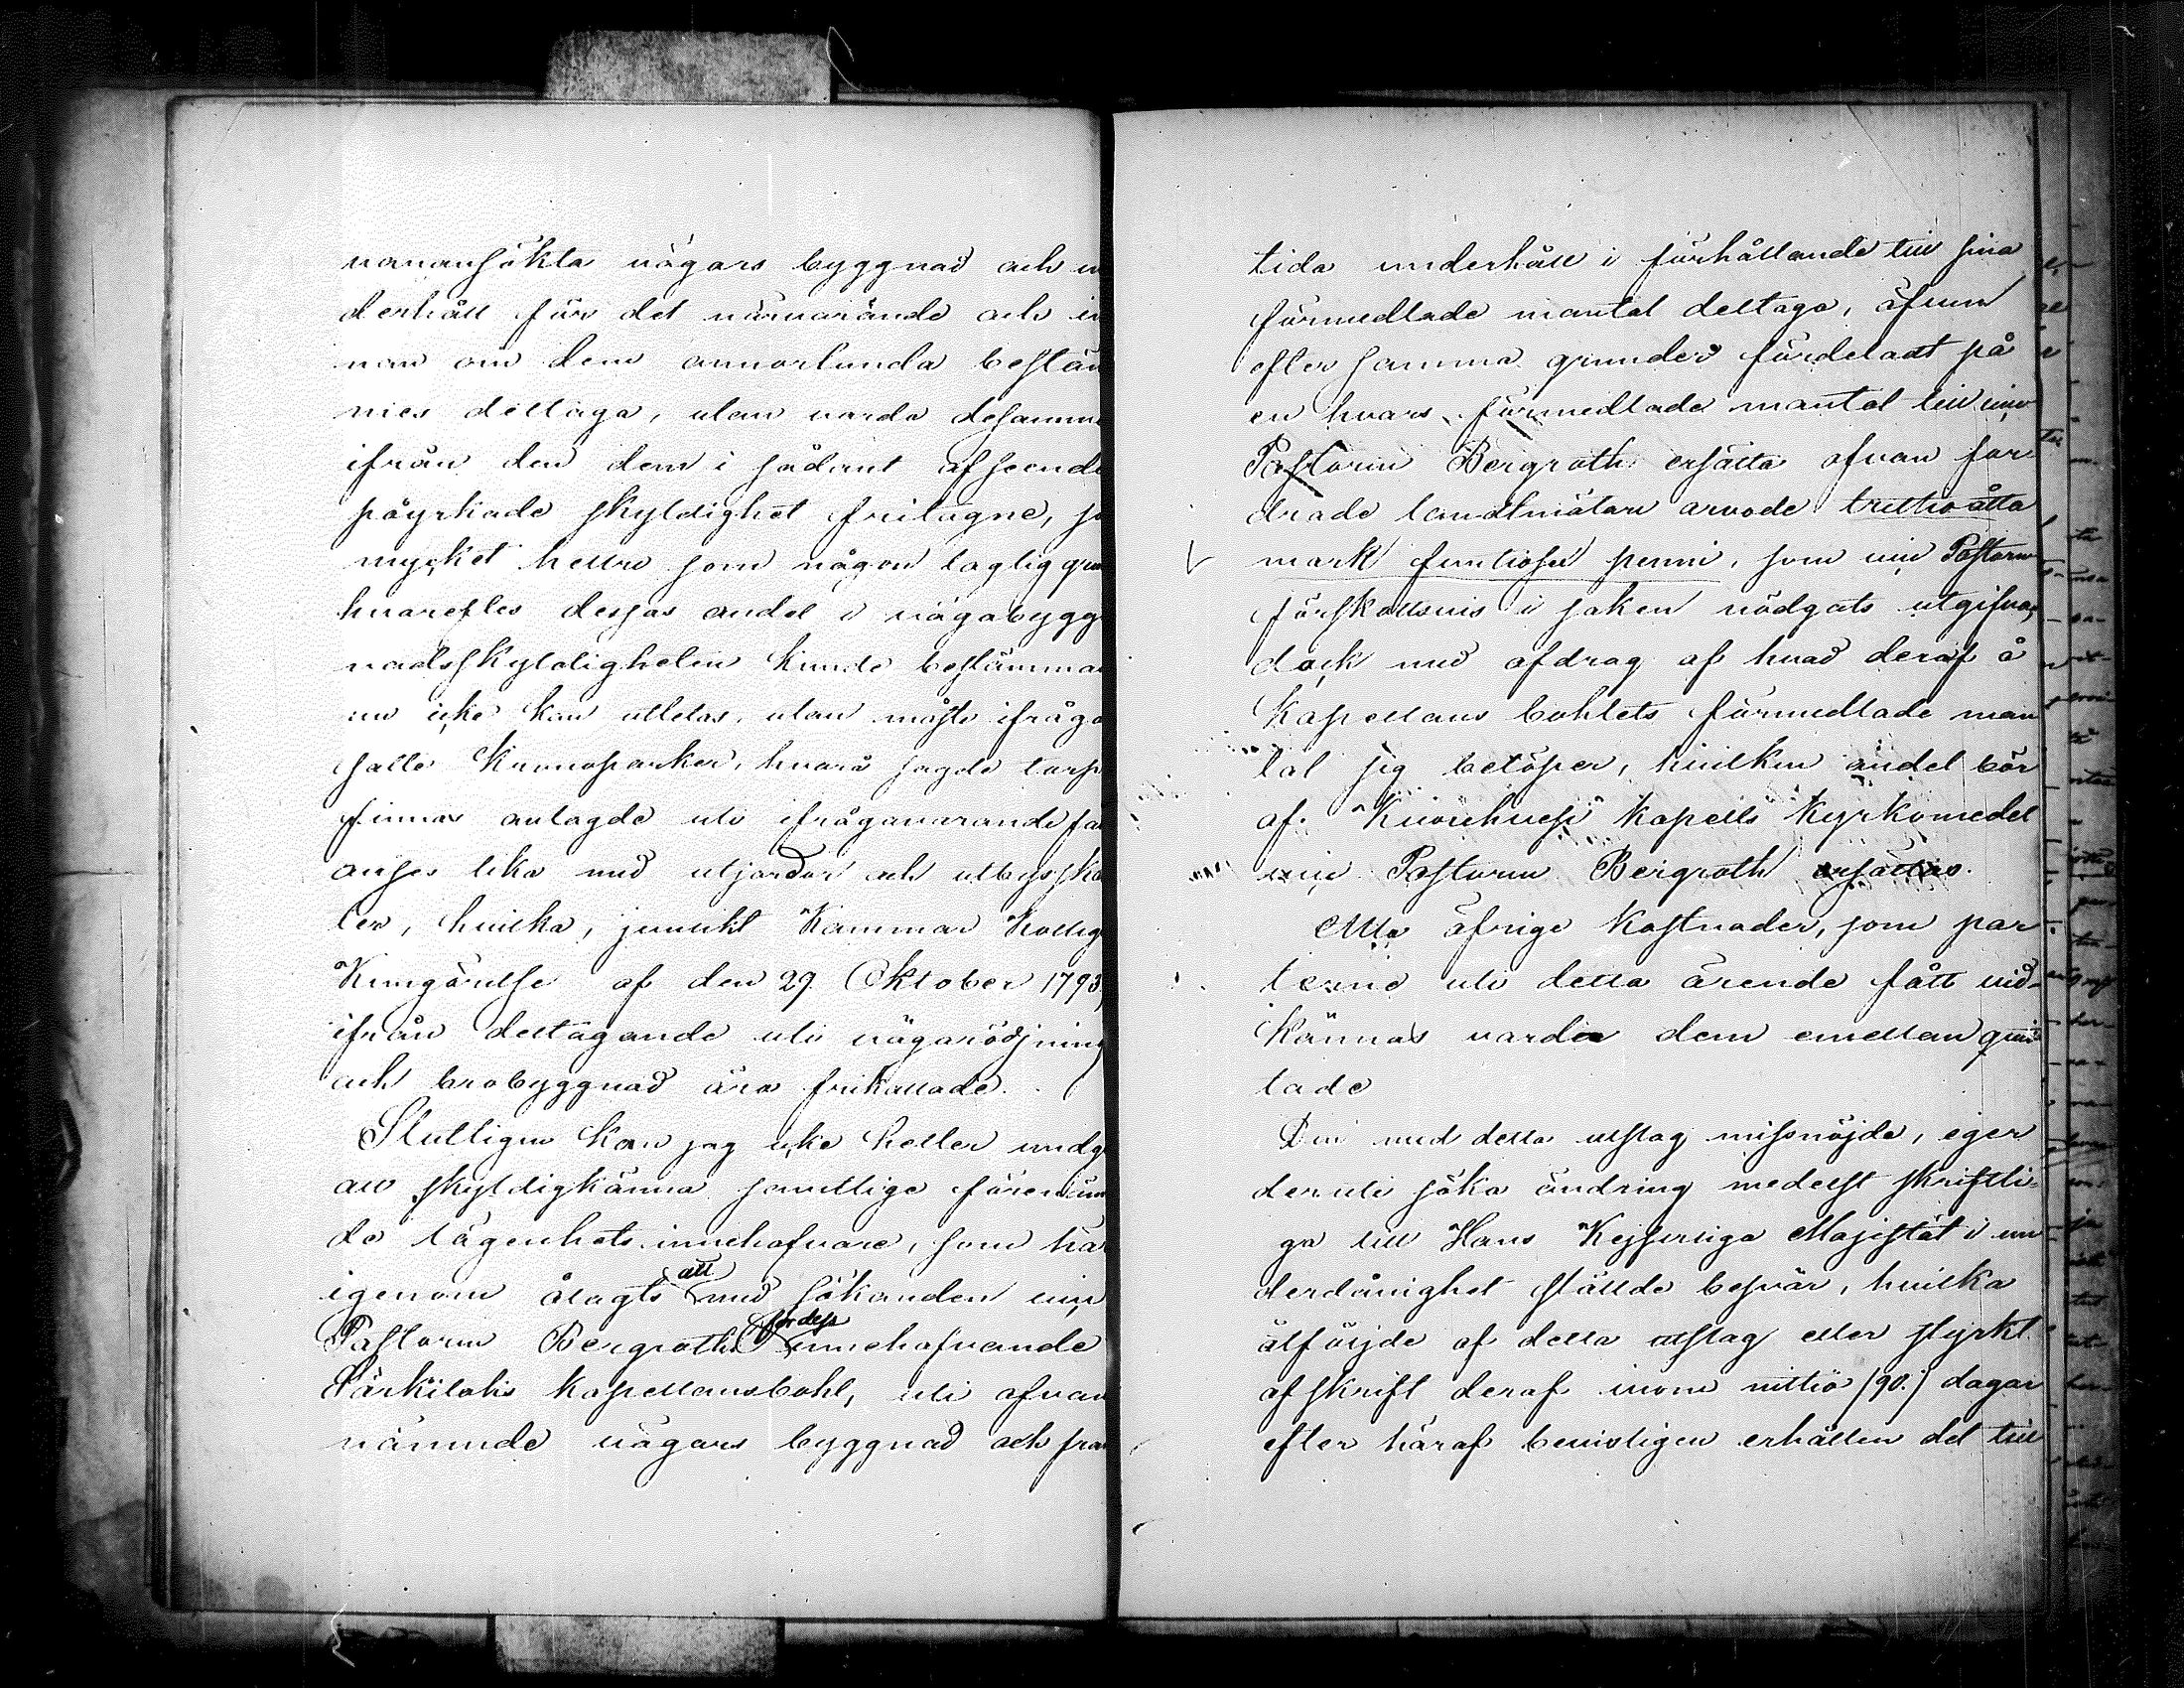 vanansökta vägars byggnad och u
derhåll för det närvarande och i
nan om dem annorlunda bestäm
mes deltaga, utan varda desamme
ifrån den dem i sådant afseende
påyrkade skyldighet fritagne, så
mycket hellre som någon laglig grun
hvarefter dessas andel i vägabygg
nadsskyldigheten kunde bestämmas
nu icke kan utletas, utan måste ifråga
satte Kronoparker, hvarå sagde torp
finnas anlagde uti ifrågavarande fa
anses lika med utjordar och utbysska
ter, hvilka, jemlikt Kammar Kolleg
Kungörelse af den 29 Oktober 1793,
ifrån deltagande uti vägarödjning
och brobyggnad äro frikallade.
Slutligen kan jag icke heller undgå
att skyldigkänna samtlige föremäm
de lägenhets innehafvare, som här
igenom ålagts att med sökanden vice
Pastorn Bergroth för dess innehafvande
Särkilaks kapellansbohl, uti ofvan
nämnde vägars byggnad och fram
tida underhåll i förhållande till sina
förmedlade mantal deltaga, äfven
efter samma grunder fördeladt på
en hvars förmedlade mantal till vice
Pastorn Bergroth ersätta ofvan for
drade landtmätare arvode trettioåtta
mark femtiosex penni, som vice Pastorn
förskottsvis i saken nödgats utgifva,
dock med afdrag af hvad deraf å
Kapellans bohlets förmedlade man
tal sig belöper, hvilken andel bör
af Kuorehvesi Kapells Kyrkomedel
vice Pastorn Bergroth ersättas.
Alla öfrige kostnader, som par
terne uti detta ärende fått vid-
kännas varda dem emellan qvit
tade
Den med detta utslag missnöjde, eger
deruti söka ändring medelst skriftli-
ga till Hans Kejserliga Majestät i un
derdånighet ställde besvär, hvilka
åtföljde af detta utslag eller styrkt
afskrift deraf inom nittio (90.) dagar
efter häraf bevisligen erhållen del till